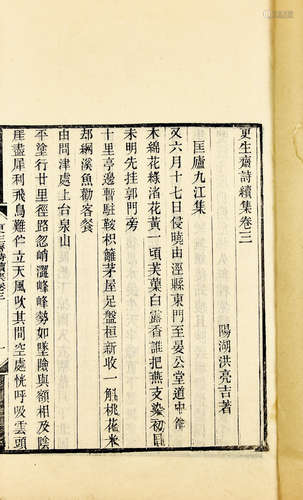 更生齋詩續集卷三
陽湖洪亮吉著
匡廬九江集
又六月十七日侵曉由涇縣東門至晏公堂道中作
木綿花綠渚花黃一芙蕖白露香誰把燕支染初
未明先挂郭門旁
十里亭邊暫駐鞍枳籬茅屋足盤桓新收一斛桃花米
却網溪魚勸客餐
由問津處上台泉山
平塗行廿里徑路忽峭灑峰峰勢如墜險與額相及陰
崖盡犀利飛鳥難作立天風吹其間空處恍呼吸雲頭